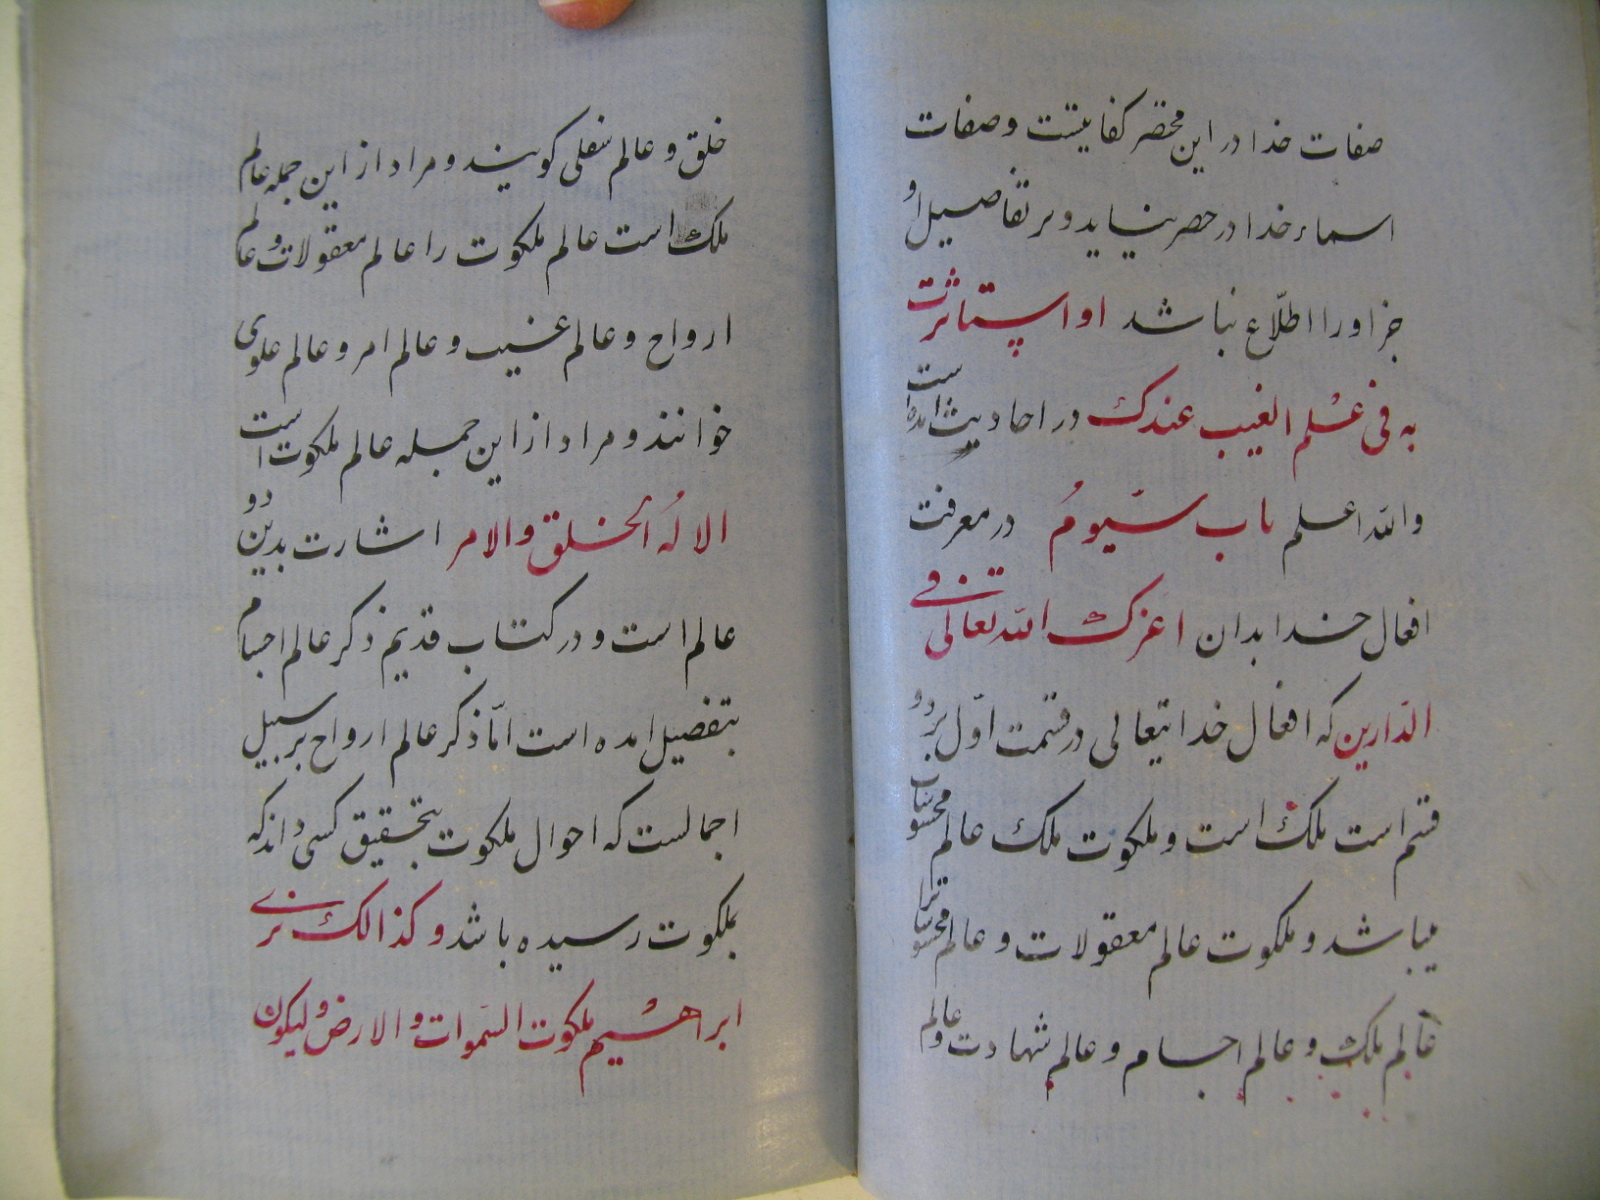 صفات خدا در این مختصر کفایتست و صفات
اسماء خدا در حصر نیاید و بر تفاصیل او
جز او را اطلّاع نباشد او استاثرت
به فی علم الغیب عندک در احادیث امده است
والله اعلم باب سیّوم در معرفت
افعال خدا بدان اعزک الله تعالی فی
الدّارین که افعال خدایتعالی در قسمت اوّل بر دو
قسم است ملک است و ملکوت ملک عالم محسوسات
میباشد و ملکوت عالم معقولات و عالم محسوساترا
عالم ملک و عالم اجسام و عالم شهادت و عالم
خلق و عالم سفلی کویند و مراد از این جمله عالم
ملک است عالم ملکوت را عالم معقولات و عالم
ارواح و عالم غیب و عالم امر و عالم علوی
خوانند و مراد از این جمله عالم ملکوت است
الا لهُ الخلق والامر اشارت بدین دو
عالم است و در کتاب قدیم ذکر عالم اجسام
بتفصیل امده است امّا ذکر عالم ارواح بر سبیل
اجمالست که احوال ملکوت بتحقیق کسی داند که
بملکوت رسیده باشد و کذالک نری
ابراهیم ملکوت السّموات والارض و لیکون